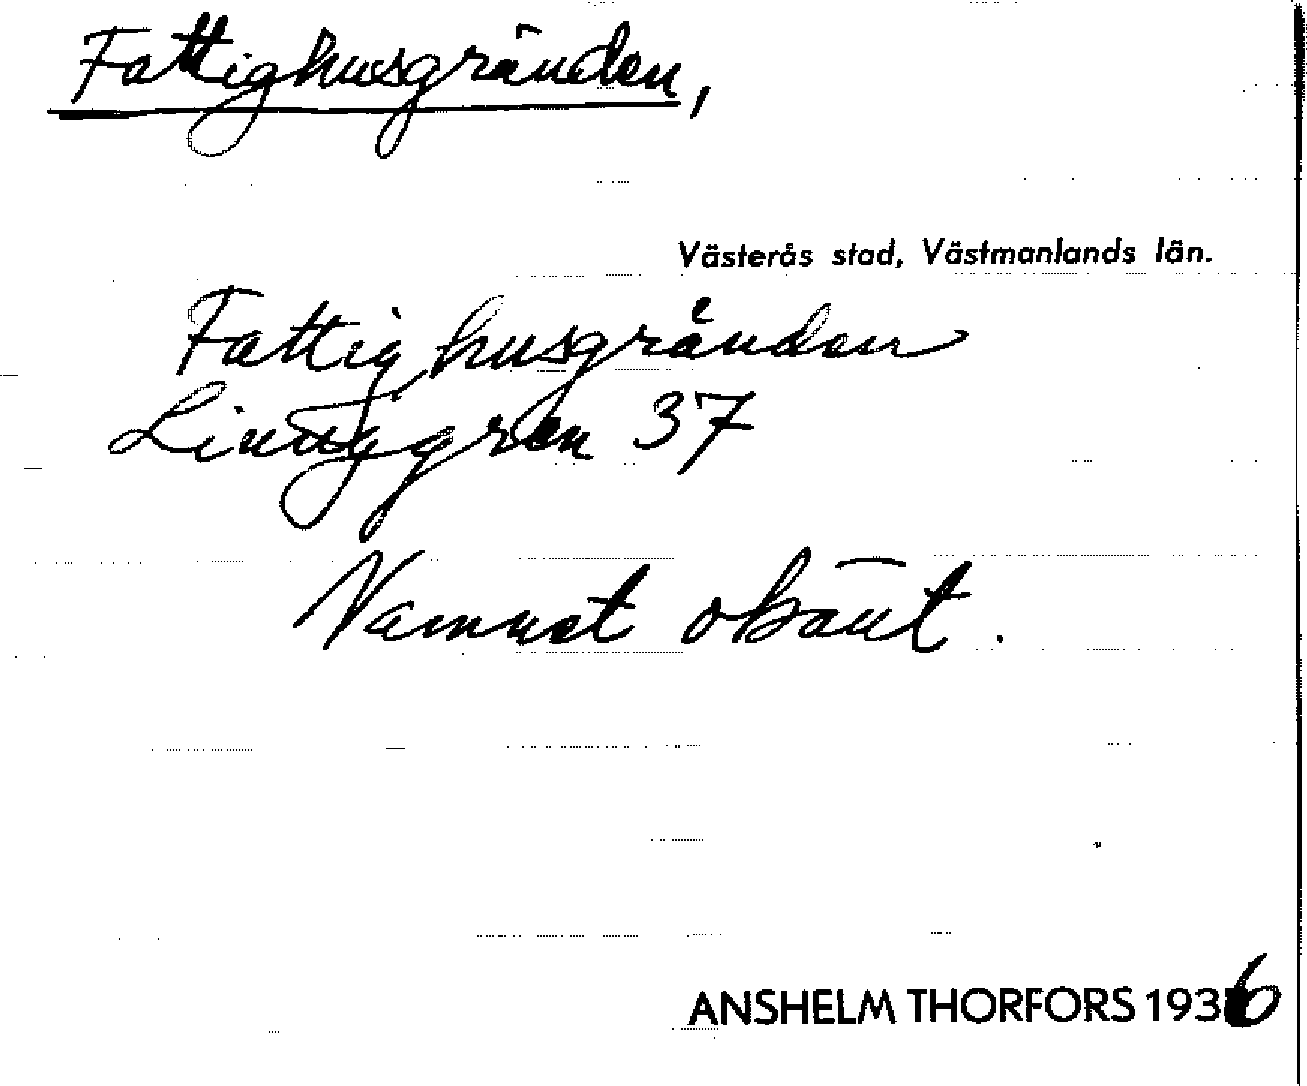 Fattighusgränden,
Västerås stad, Västmanlands län.
Fattighusgränden
Linnggren 37
Namnet okänt.
ANSHELM THORFORS 1936